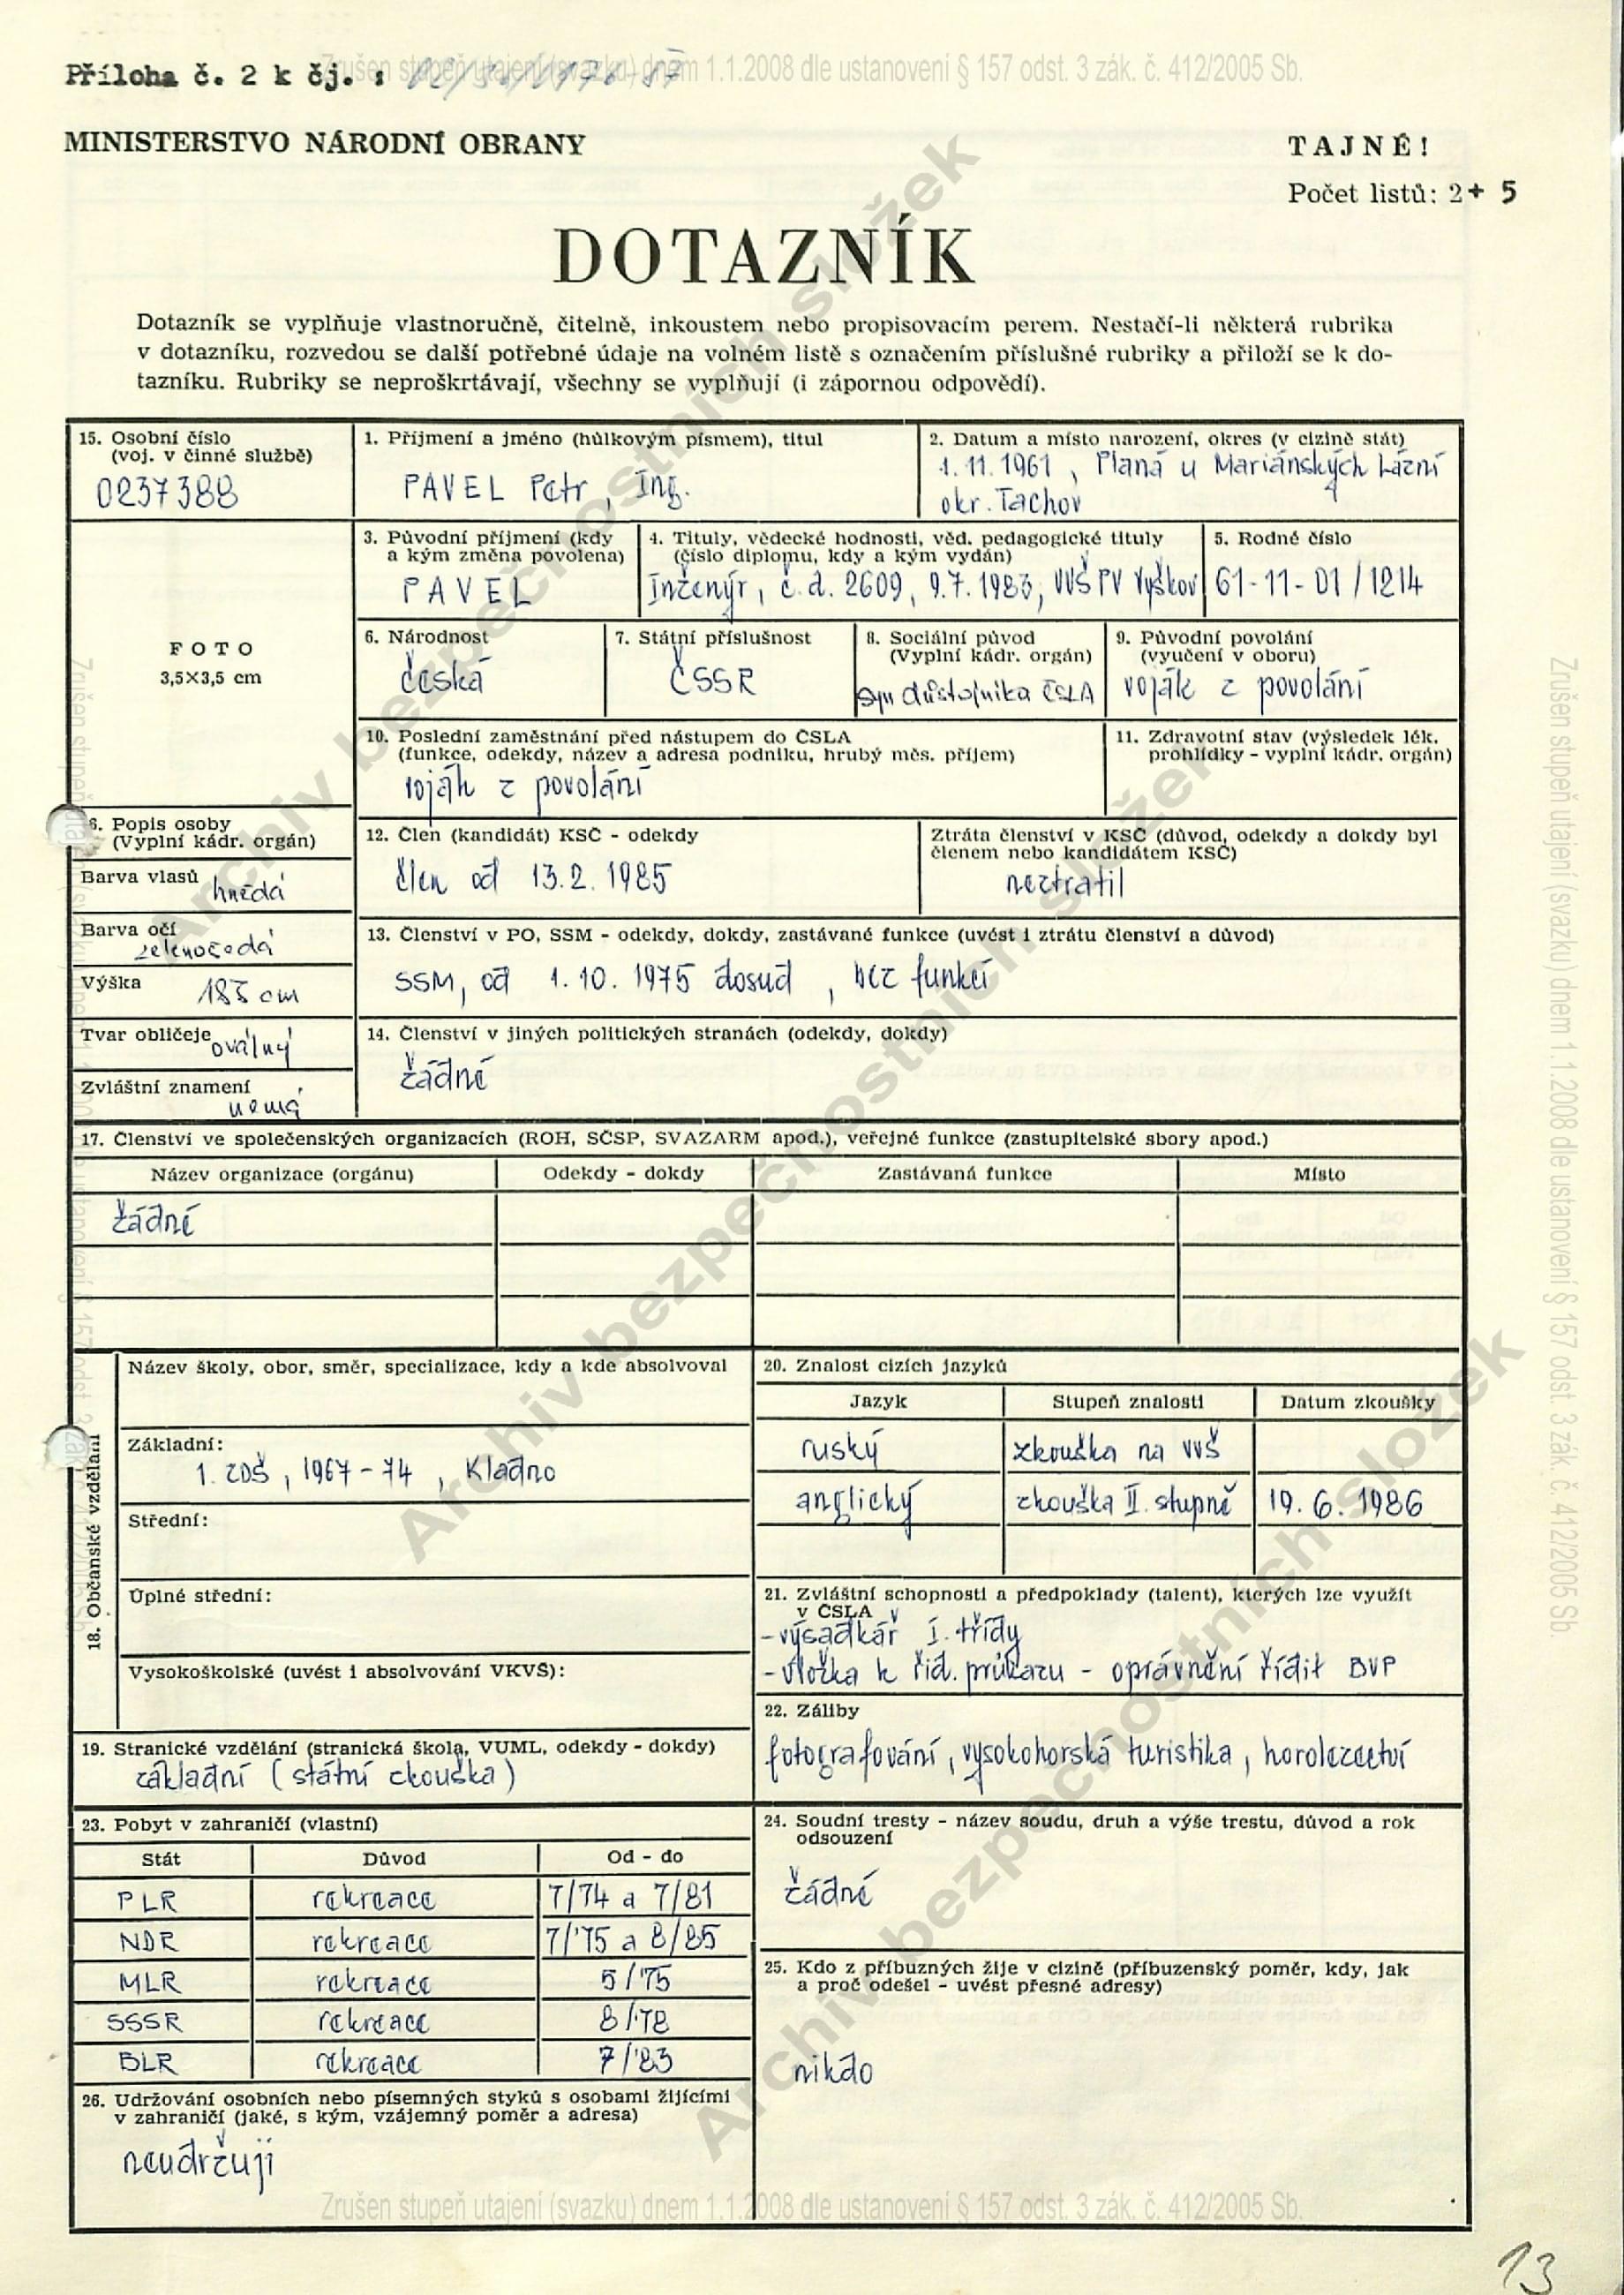 Zrušen stupeň utajení (svazku) dnem 1.1.2008 dle ustanovení § 157 odst. 3 zák. č. 412/2005 Sb.
Příloha č. 2 k čj. :
MINISTERSTVO NÁRODNÍ OBRANY
TAJNÉ!
Počet listů: 2 + 5
DOTAZNÍK
Dotazník se vyplňuje vlastnoručně, čitelně, inkoustem nebo propisovacím perem. Nestačí-li některá rubrika
v dotazníku, rozvedou se další potřebné údaje na volném listě s označením příslušné rubriky a přiloží se k do-
tazníku. Rubriky se neproškrtávají, všechny se vyplňují (i zápornou odpovědí).
15. Osobní číslo
(voj. v činné službě)
0237388
1. Příjmení a jméno (hůlkovým písmem), titul
PAVEL Petr, Ing.
2. Datum a místo narození, okres (v cizině stát)
1. 11. 1961, Planá u Mariánských Lázní
okr. Tachov
FOTO
3,5×3,5 cm
3. Původní příjmení (kdy
a kým změna povolena)
PAVEL
4. Tituly, vědecké hodnosti, věd. pedagogické tituly
(číslo diplomu, kdy a kým vydán)
Inženýr, č.d. 2609, 9.7.1983, VVŠ PV Vyškov
5. Rodné číslo
61-11-01/1214
6. Národnost
česká
7. Státní příslušnost
ČSSR
8. Sociální původ
(Vyplní kádr. orgán)
syn důstojníka ČSLA
9. Původní povolání
(vyučení v oboru)
voják z povolání
10. Poslední zaměstnání před nástupem do ČSLA
(funkce, odekdy, název a adresa podniku, hrubý měs. příjem)
voják z povolání
11. Zdravotní stav (výsledek lék.
prohlídky - vyplní kádr. orgán)
6. Popis osoby
(Vyplní kádr. orgán)
Barva vlasů hnědá
Barva očí
zelenošedá
Výška
183 cm
Tvar obličeje oválný
Zvláštní znamení
nemá
12. Člen (kandidát) KSČ - odekdy
člen od 13.2.1985
Ztráta členství v KSČ (důvod, odekdy a dokdy byl
členem nebo kandidátem KSČ)
neztratil
13. Členství v PO, SSM - odekdy, dokdy, zastávané funkce (uvést i ztrátu členství a důvod)
SSM, od 1.10.1975 dosud, bez funkcí
14. Členství v jiných politických stranách (odekdy, dokdy)
žádné
17. Členství ve společenských organizacích (ROH, SČSP, SVAZARM apod.), veřejné funkce (zastupitelské sbory apod.)
Název organizace (orgánu)
Odekdy - dokdy
Zastávaná funkce
Místo
žádné
18. Občanské vzdělání
Název školy, obor, směr, specializace, kdy a kde absolvoval
Základní:
1. ZDŠ, 1967-74, Kladno
Střední:
Úplné střední:
Vysokoškolské (uvést i absolvování VKVŠ):
19. Stranické vzdělání (stranická škola, VUML, odekdy - dokdy)
základní (státní zkouška)
20. Znalost cizích jazyků
Jazyk
Stupeň znalosti
Datum zkoušky
ruský
zkouška na VVŠ
anglický
zkouška II. stupně
19. 6. 1986
21. Zvláštní schopnosti a předpoklady (talent), kterých lze využít
v ČSLA
- výsadkář I. třídy
- vložka k řid. průkazu - oprávnění řídit BVP
22. Záliby
fotografování, vysokohorská turistika, horolezectví
23. Pobyt v zahraničí (vlastní)
Stát
Důvod
Od - do
PLR rekreace 7/74 a 7/81
NDR rekreace 7/75 a 8/85
MLR rekreace 5/75
SSSR rekreace 8/78
BLR rekreace 7/83
24. Soudní tresty - název soudu, druh a výše trestu, důvod a rok
odsouzení
žádné
25. Kdo z příbuzných žije v cizině (příbuzenský poměr, kdy, jak
a proč odešel - uvést přesné adresy)
nikdo
26. Udržování osobních nebo písemných styků s osobami žijícími
v zahraničí (jaké, s kým, vzájemný poměr a adresa)
neudržuji
Zrušen stupeň utajení (svazku) dnem 1.1.2008 dle ustanovení § 157 odst. 3 zák. č. 412/2005 Sb.
Zrušen stupeň utajení (svazku) dnem 1.1.2008 dle ustanovení § 157 odst. 3 zák. č. 412/2005 Sb.
Archiv bezpečnostních složek
Archiv bezpečnostních složek
Archiv bezpečnostních složek
13